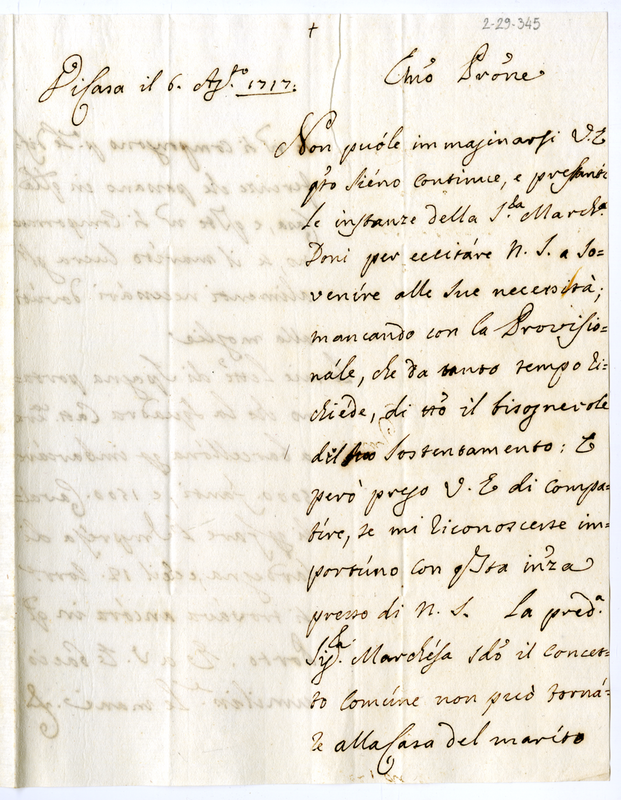 2-29-345
Di Casa il 6. Ag.to 1717.
Emo Prone
Non puóle immaginarsi V. E
qto siéno continue, e pressanti
le instanze della S.ra March.a
Doni per eccitáre N. S. a so=
venire alle sue necessità;
mancando con la Provisio=
nále, che da tanto tempo ri=
chiede, di tto il bisognevole
del suo sostentamento: E
però prego V. E di compa=
tíre, se mi riconoscesse im=
portúno con qsta inza
presso di N. S. La pred.a
Sig.ra Marchésa sdo il concer=
to comúne non può torná=
re alla Casa del maríto